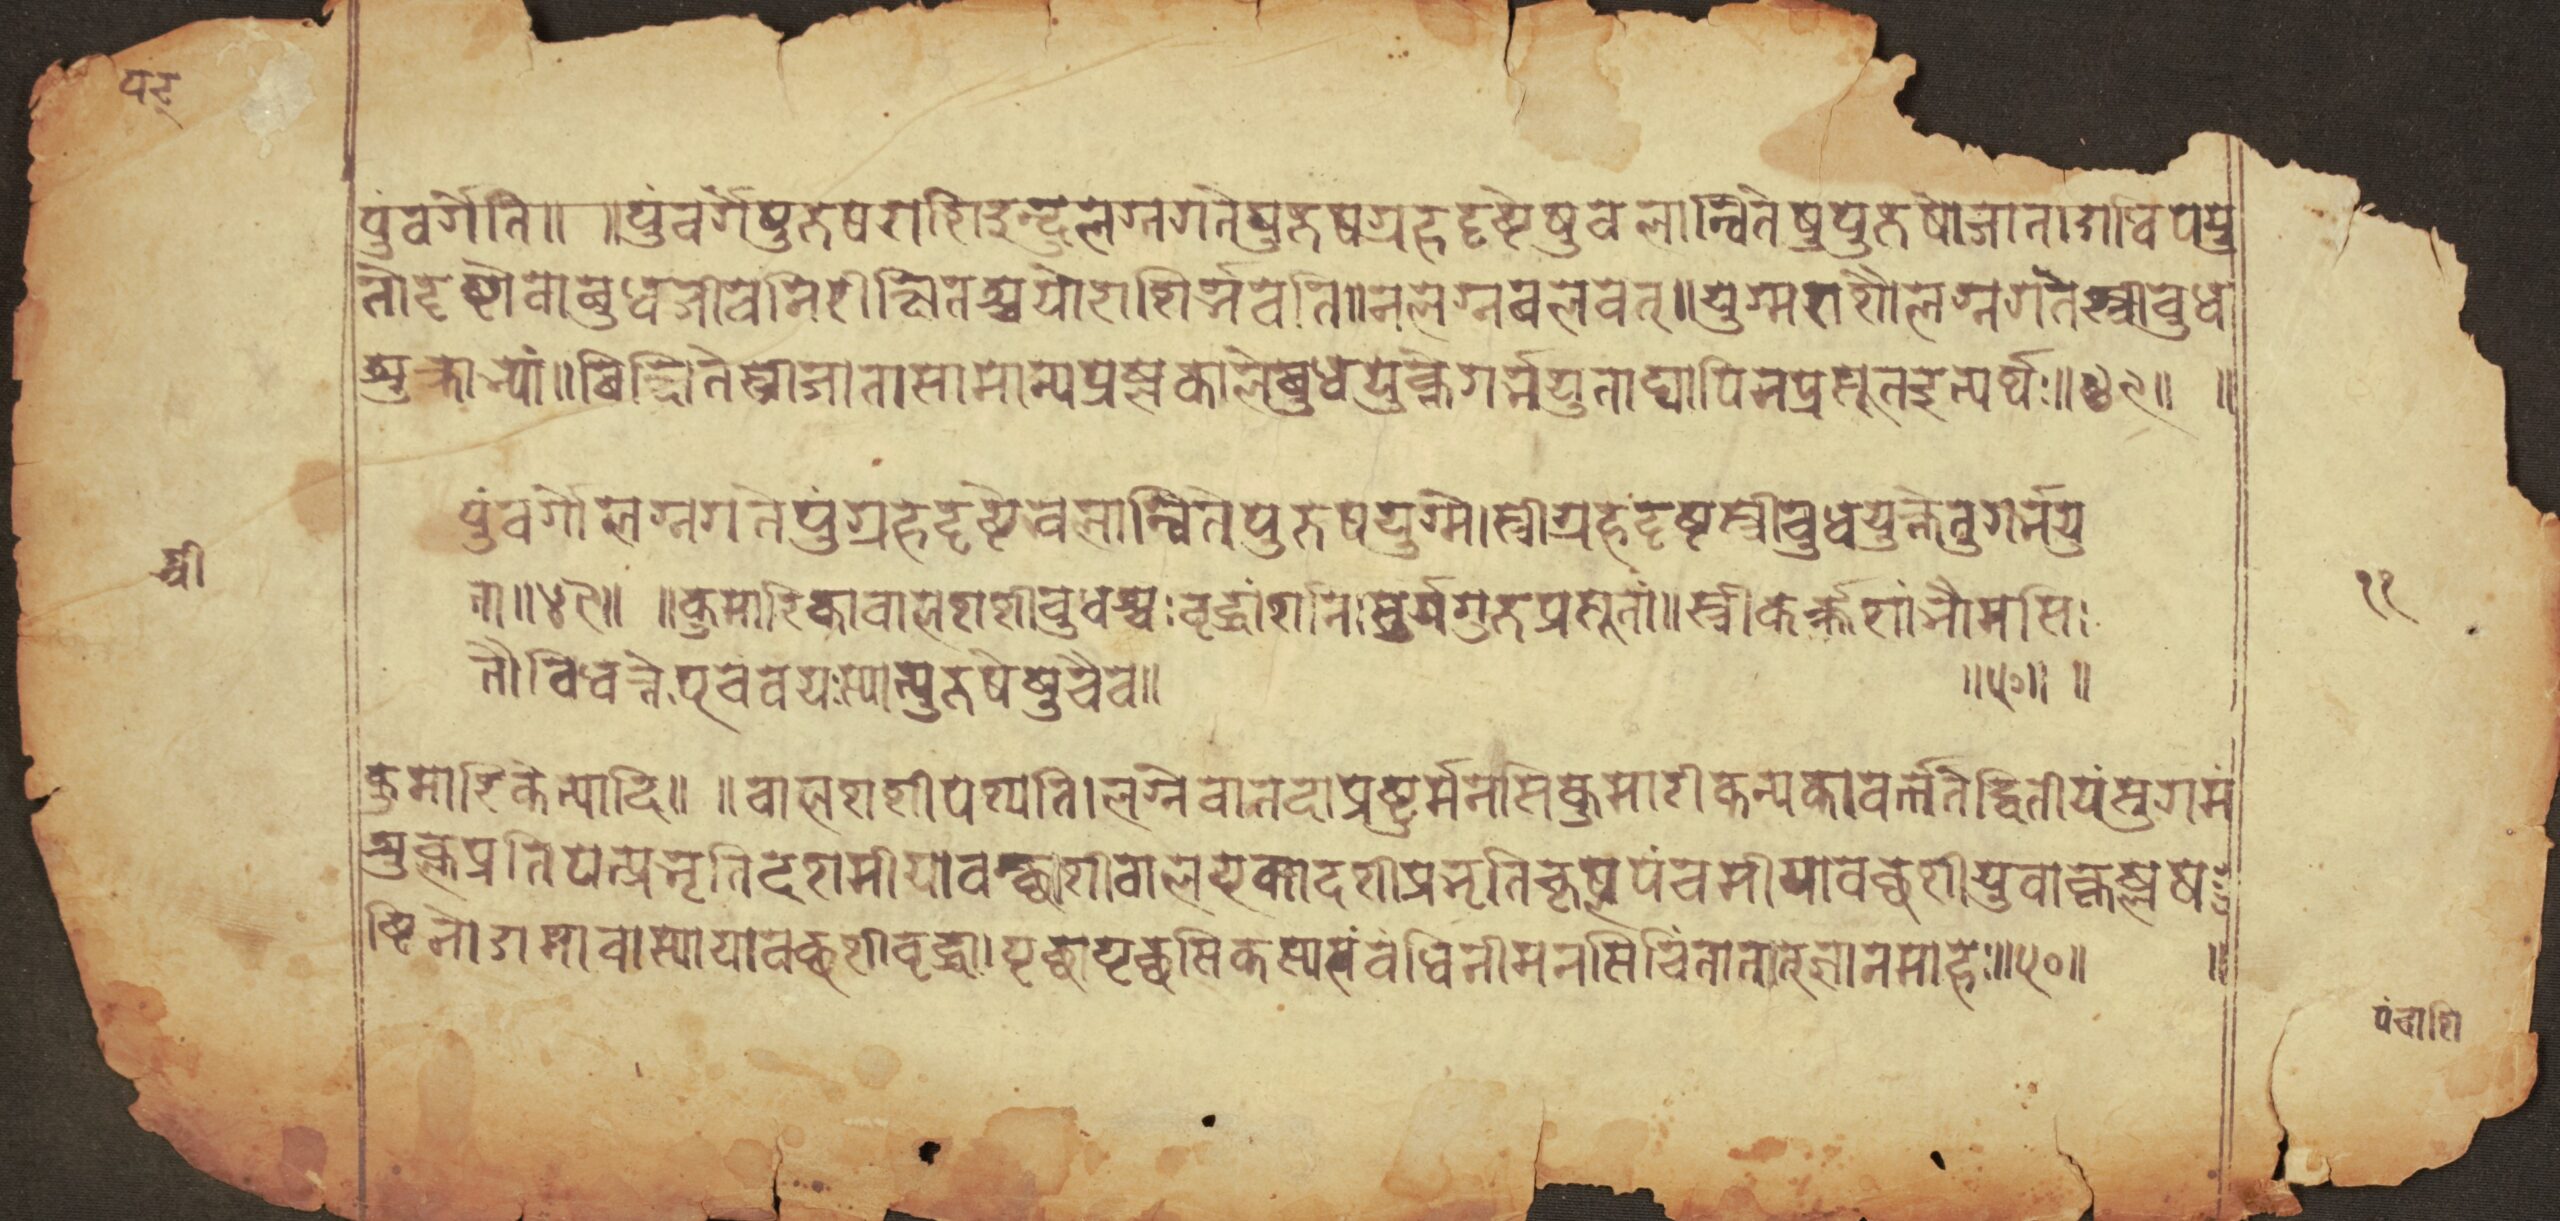 पट्
पुंवर्गेति॥ ॥पुंवर्गेपुरुषराशिइन्दुलग्नगतेपुरुषग्रहदृष्टेषुबलान्वितेषुपुरुषोजातागधिपेपु
तौदृष्टौवाबुधजीवनिरीक्षितश्चयोराशिर्भवति॥नलग्नबलवत्॥युग्मराशौलग्नगतेस्त्रीबुध
शुक्राभ्यां॥विन्दितेस्त्रीजातासामान्यप्रश्नकालेबुधयुक्तेगर्भयुताद्यापिनप्रसूतइत्यर्थः॥४९॥ ॥
पुंवर्गौलग्नगतेपुंग्रहदृष्टेबलान्वितेपुरुषयुग्मे।स्त्रीग्रहदृष्टस्त्रीबुधयुक्तेतुगर्भयु
ता॥४९॥ ॥कुमारिकाबालशशीबुधश्चःवृद्धांशनिःसूर्यगुरुप्रसूतां॥स्त्रीकर्क्कशांभौमसिः
तौविधत्तेएवंवयःस्यात्पुरुषेषुचैव॥ ॥५०॥ ॥
श्री
११
कुमारिकेत्यादि॥ ॥बालशशीपश्यति।लग्नेवातदाप्रष्टुर्मनसिकुमारीकन्यकावर्त्ततेद्वितीयंसुगमं
शुक्लप्रतिपत्प्रभृतिदशमीयावच्छशीबालएकादशीप्रभृतिकृष्णपंचमीयावच्छशीयुवाकृष्णष
ष्टिनोऽमावास्यायावच्छशीवृद्धा।पृच्छापृच्छसिकस्यसंबंधिनीमनसिचिंतातत्ज्ञानमाहः॥५०॥ ॥
पंचाशि